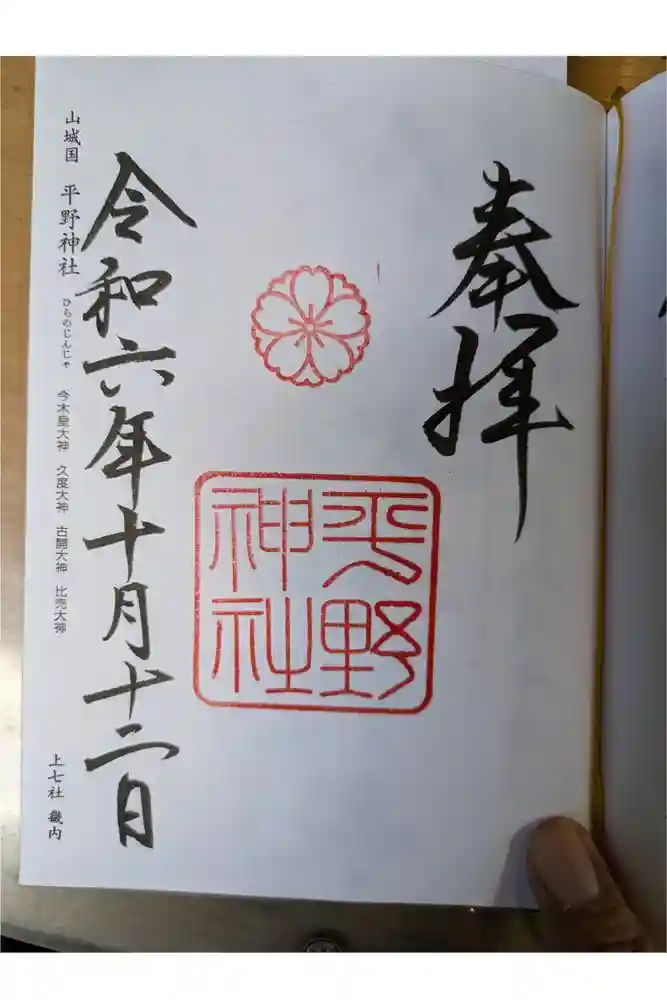 奉拝
平野
神社
令和六年十月十二日
山城国 平野神社 ひらのじんじゃ 今木皇大神 久度大神 古開大神 比売大神
上七社 畿内